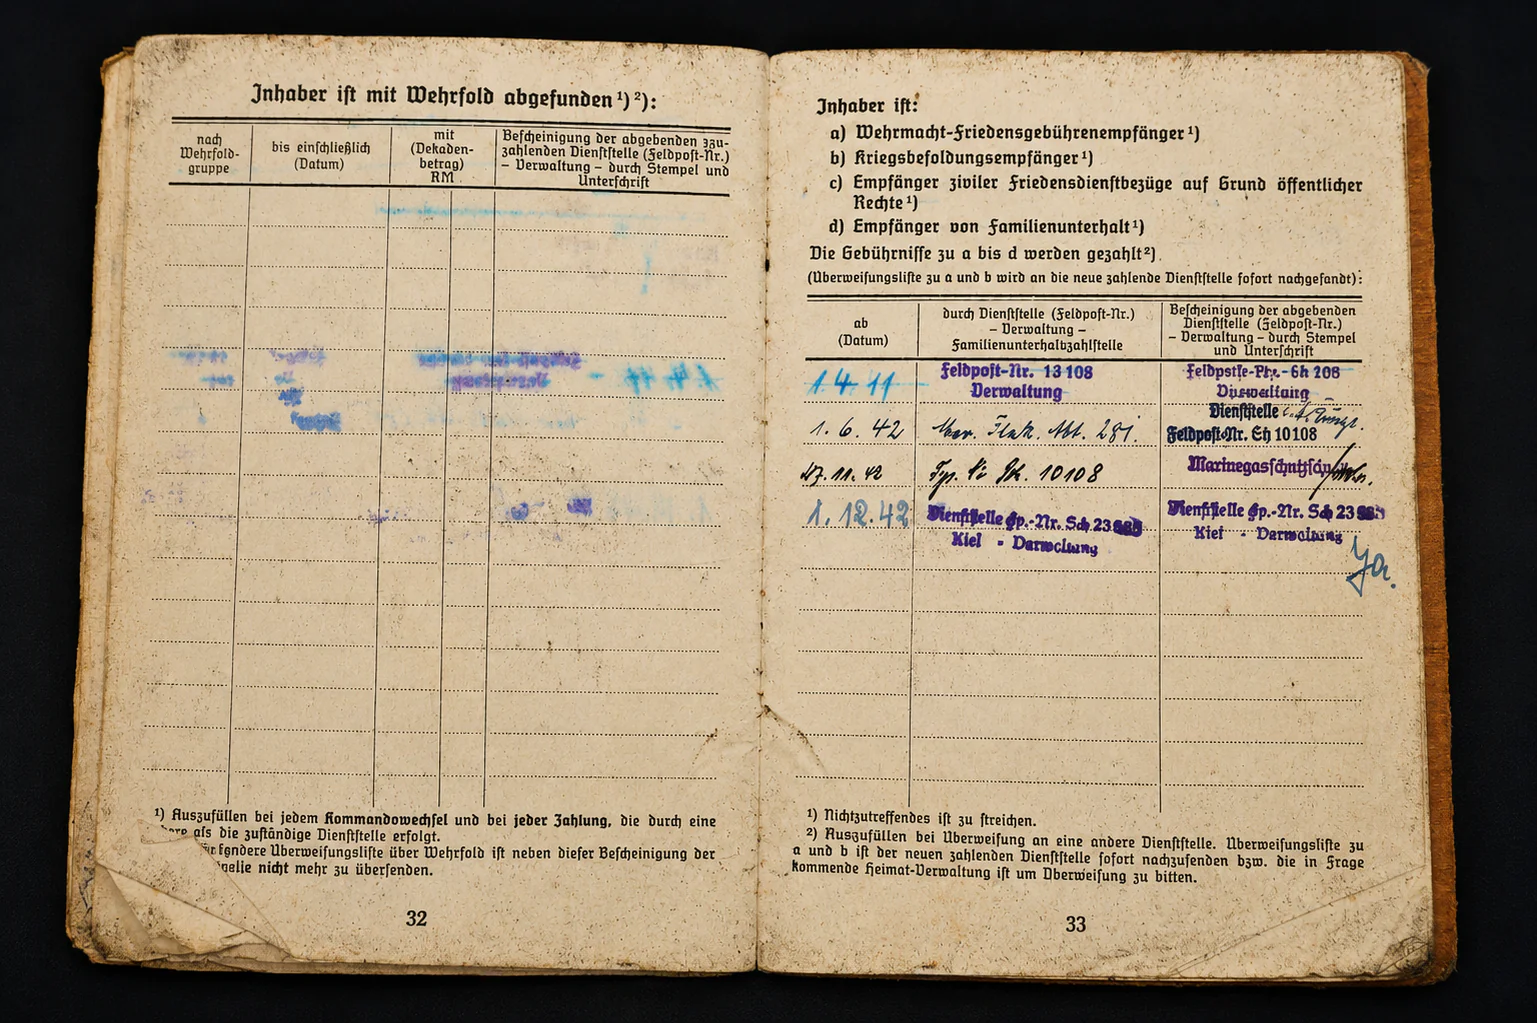 Inhaber ist mit Wehrfold abgefunden ¹) ²):
nach Wehrfold-gruppe
bis einschließlich (Datum)
mit (Dekaden-betrag) RM
Bescheinigung der abgebenden zzu-
zahlenden Dienststelle (Feldpost-Nr.)
– Verwaltung – durch Stempel und
Unterschrift
¹) Auszufüllen bei jedem Kommandowechsel und bei jeder Zahlung, die durch eine
als die zuständige Dienststelle erfolgt.
Überweisungsliste über Wehrfold ist neben dieser Bescheinigung der
nicht mehr zu übersenden.
32
Inhaber ist:
a) Wehrmacht-Friedensgebührenempfänger ¹)
b) Kriegsbesoldungsempfänger ¹)
c) Empfänger ziviler Friedensdienstbezüge auf Grund öffentlicher
Rechte ¹)
d) Empfänger von Familienunterhalt ¹)
Die Gebührnisse zu a bis d werden gezahlt ²).
(Uberweisungsliste zu a und b wird an die neue zahlende Dienststelle sofort nachgesandt):
ab (Datum)
durch Dienststelle (Feldpost-Nr.)
– Verwaltung –
Familienunterhaltzahlstelle
Bescheinigung der abgebenden
Dienststelle (Feldpost-Nr.)
– Verwaltung – durch Stempel
und Unterschrift
1. 4. 11 Feldpost-Nr. 13 108
Verwaltung
Dienststelle
1. 6. 42 Mar. Flak. Abt. 281. Feldpost-Nr. 10108
11. 42 10108
1. 12. 42 Dienststelle Sch 23 Dienststelle Sch 23
Kiel - Kiel -
Ja.
¹) Nichtzutreffendes ist zu streichen.
²) Auszufüllen bei Uberweisung an eine andere Dienststelle. Uberweisungsliste zu
a und b ist der neuen zahlenden Dienststelle sofort nachzusenden bzw. die in Frage
kommende Heimat-Verwaltung ist um Dberweisung zu bitten.
33